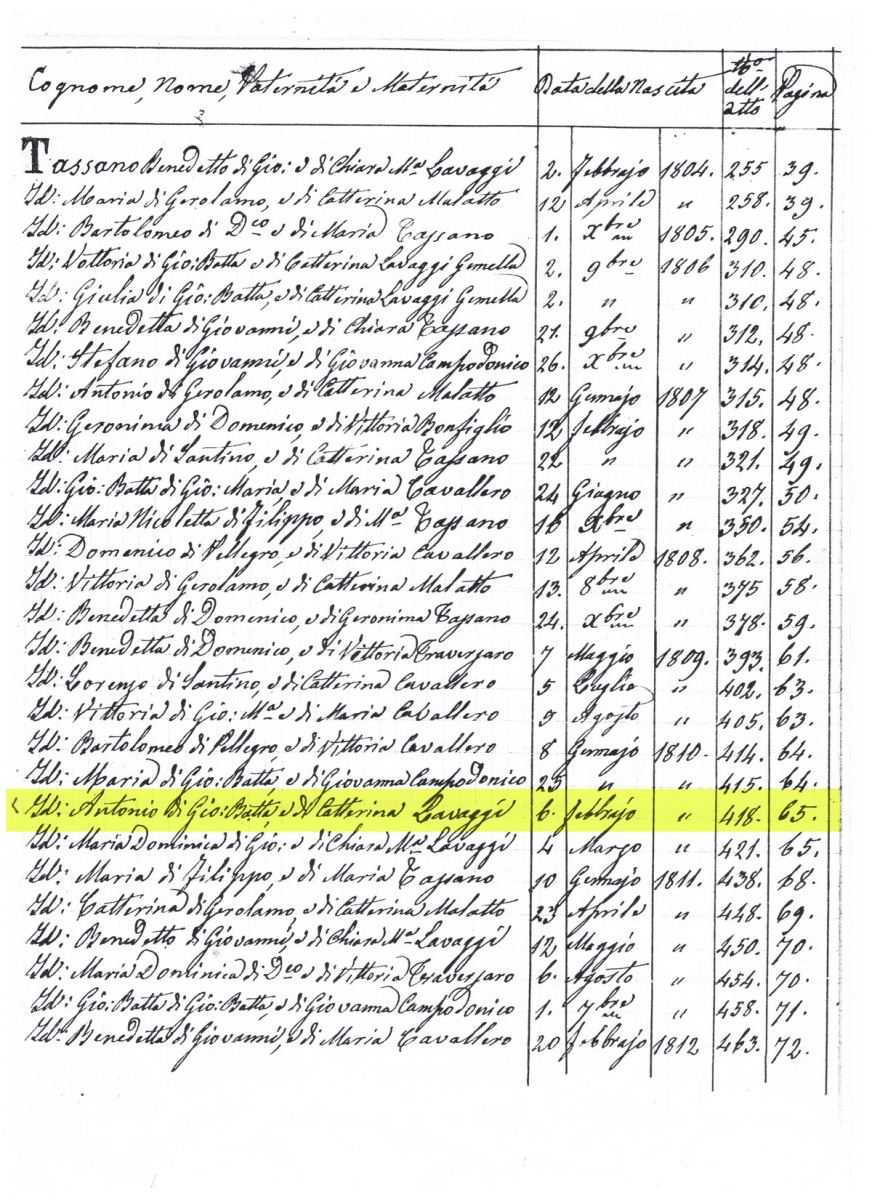 Cognome, Nome, Paternità e Maternità Data della Nascita No dell' atto Pagina
Tassano Benedetto di Gio: e di Chiara Ma Lavaggi 2. Febbrajo 1804. 255 39.
Id: Maria di Gerolamo, e di Catterina Malatto 12 Aprile " 258. 39.
Id: Bartolomeo di Dco e di Maria Tassano 1. Xbre 1805. 290. 45.
Id: Vottoria di Gio: Batta e di Catterina Lavaggi Gemella 2. 9bre 1806 310. 48.
Id: Giulia di Gio: Batta, e di Catterina Lavaggi Gemella 2. " " 310. 48.
Id: Benedetta di Giovanni, e di Chiara Tassano 21. 9bre " 312. 48.
Id: Stefano di Giovanni, e di Giovanna Campodonico 26. Xbre " 314. 48.
Id: Antonio di Gerolamo, e di Catterina Malatto 12 Gennajo 1807 315. 48.
Id: Geronima di Domenico, e di Vittoria Bonfiglio 12 Febbrajo " 318. 49.
Id: Maria di Santino, e di Catterina Tassano 22 " " 321. 49.
Id: Gio: Batta di Gio: Maria e di Maria Cavallero 24 Giugno " 327. 50.
Id: Maria Nicoletta di Filippo, e di Ma Tassano 16 Xbre " 350. 54.
Id: Domenico di Pellegro, e di Vittoria Cavallero 12 Aprile 1808. 362. 56.
Id: Vittoria di Gerolamo, e di Catterina Malatto 13. 8bre " 375 58.
Id: Benedetta di Domenico, e di Geronima Tassano 24. Xbre " 378. 59.
Id: Benedetta di Domenico, e di Vittoria Traversaro 7 Maggio 1809. 393. 61.
Id: Lorenzo di Santino, e di Catterina Cavallero 5 Luglio " 402. 63.
Id: Vittoria di Gio: Ma e di Maria Cavallero 9 Agosto " 405. 63.
Id: Bartolomeo di Pellegro, e di Vittoria Cavallero 8 Gennajo 1810. 414. 64.
Id: Maria di Gio: Batta, e di Giovanna Campodonico 25 " " 415. 64.
Id: Antonio di Gio: Batta e di Catterina Lavaggi 6. Febbrajo " 418. 65.
Id: Maria Dominica di Gio: e di Chiara Ma Lavaggi 4 Marzo " 421. 65.
Id: Maria di Filippo, e di Maria Tassano 10 Gennajo 1811. 438. 68.
Id: Catterina di Gerolamo, e di Catterina Malatto 23 Aprile " 448. 69.
Id: Benedetto di Giovanni, e di Chiara Ma Lavaggi 12 Maggio " 450. 70.
Id: Maria Dominica di Dco e di Vittoria Traversaro 6. Agosto " 454. 70.
Id: Gio: Batta di Gio: Batta, e di Giovanna Campodonico 1. 7bre " 458. 71.
Id: Benedetta di Giovanni, e di Maria Cavallero 20 Febbrajo 1812 463. 72.